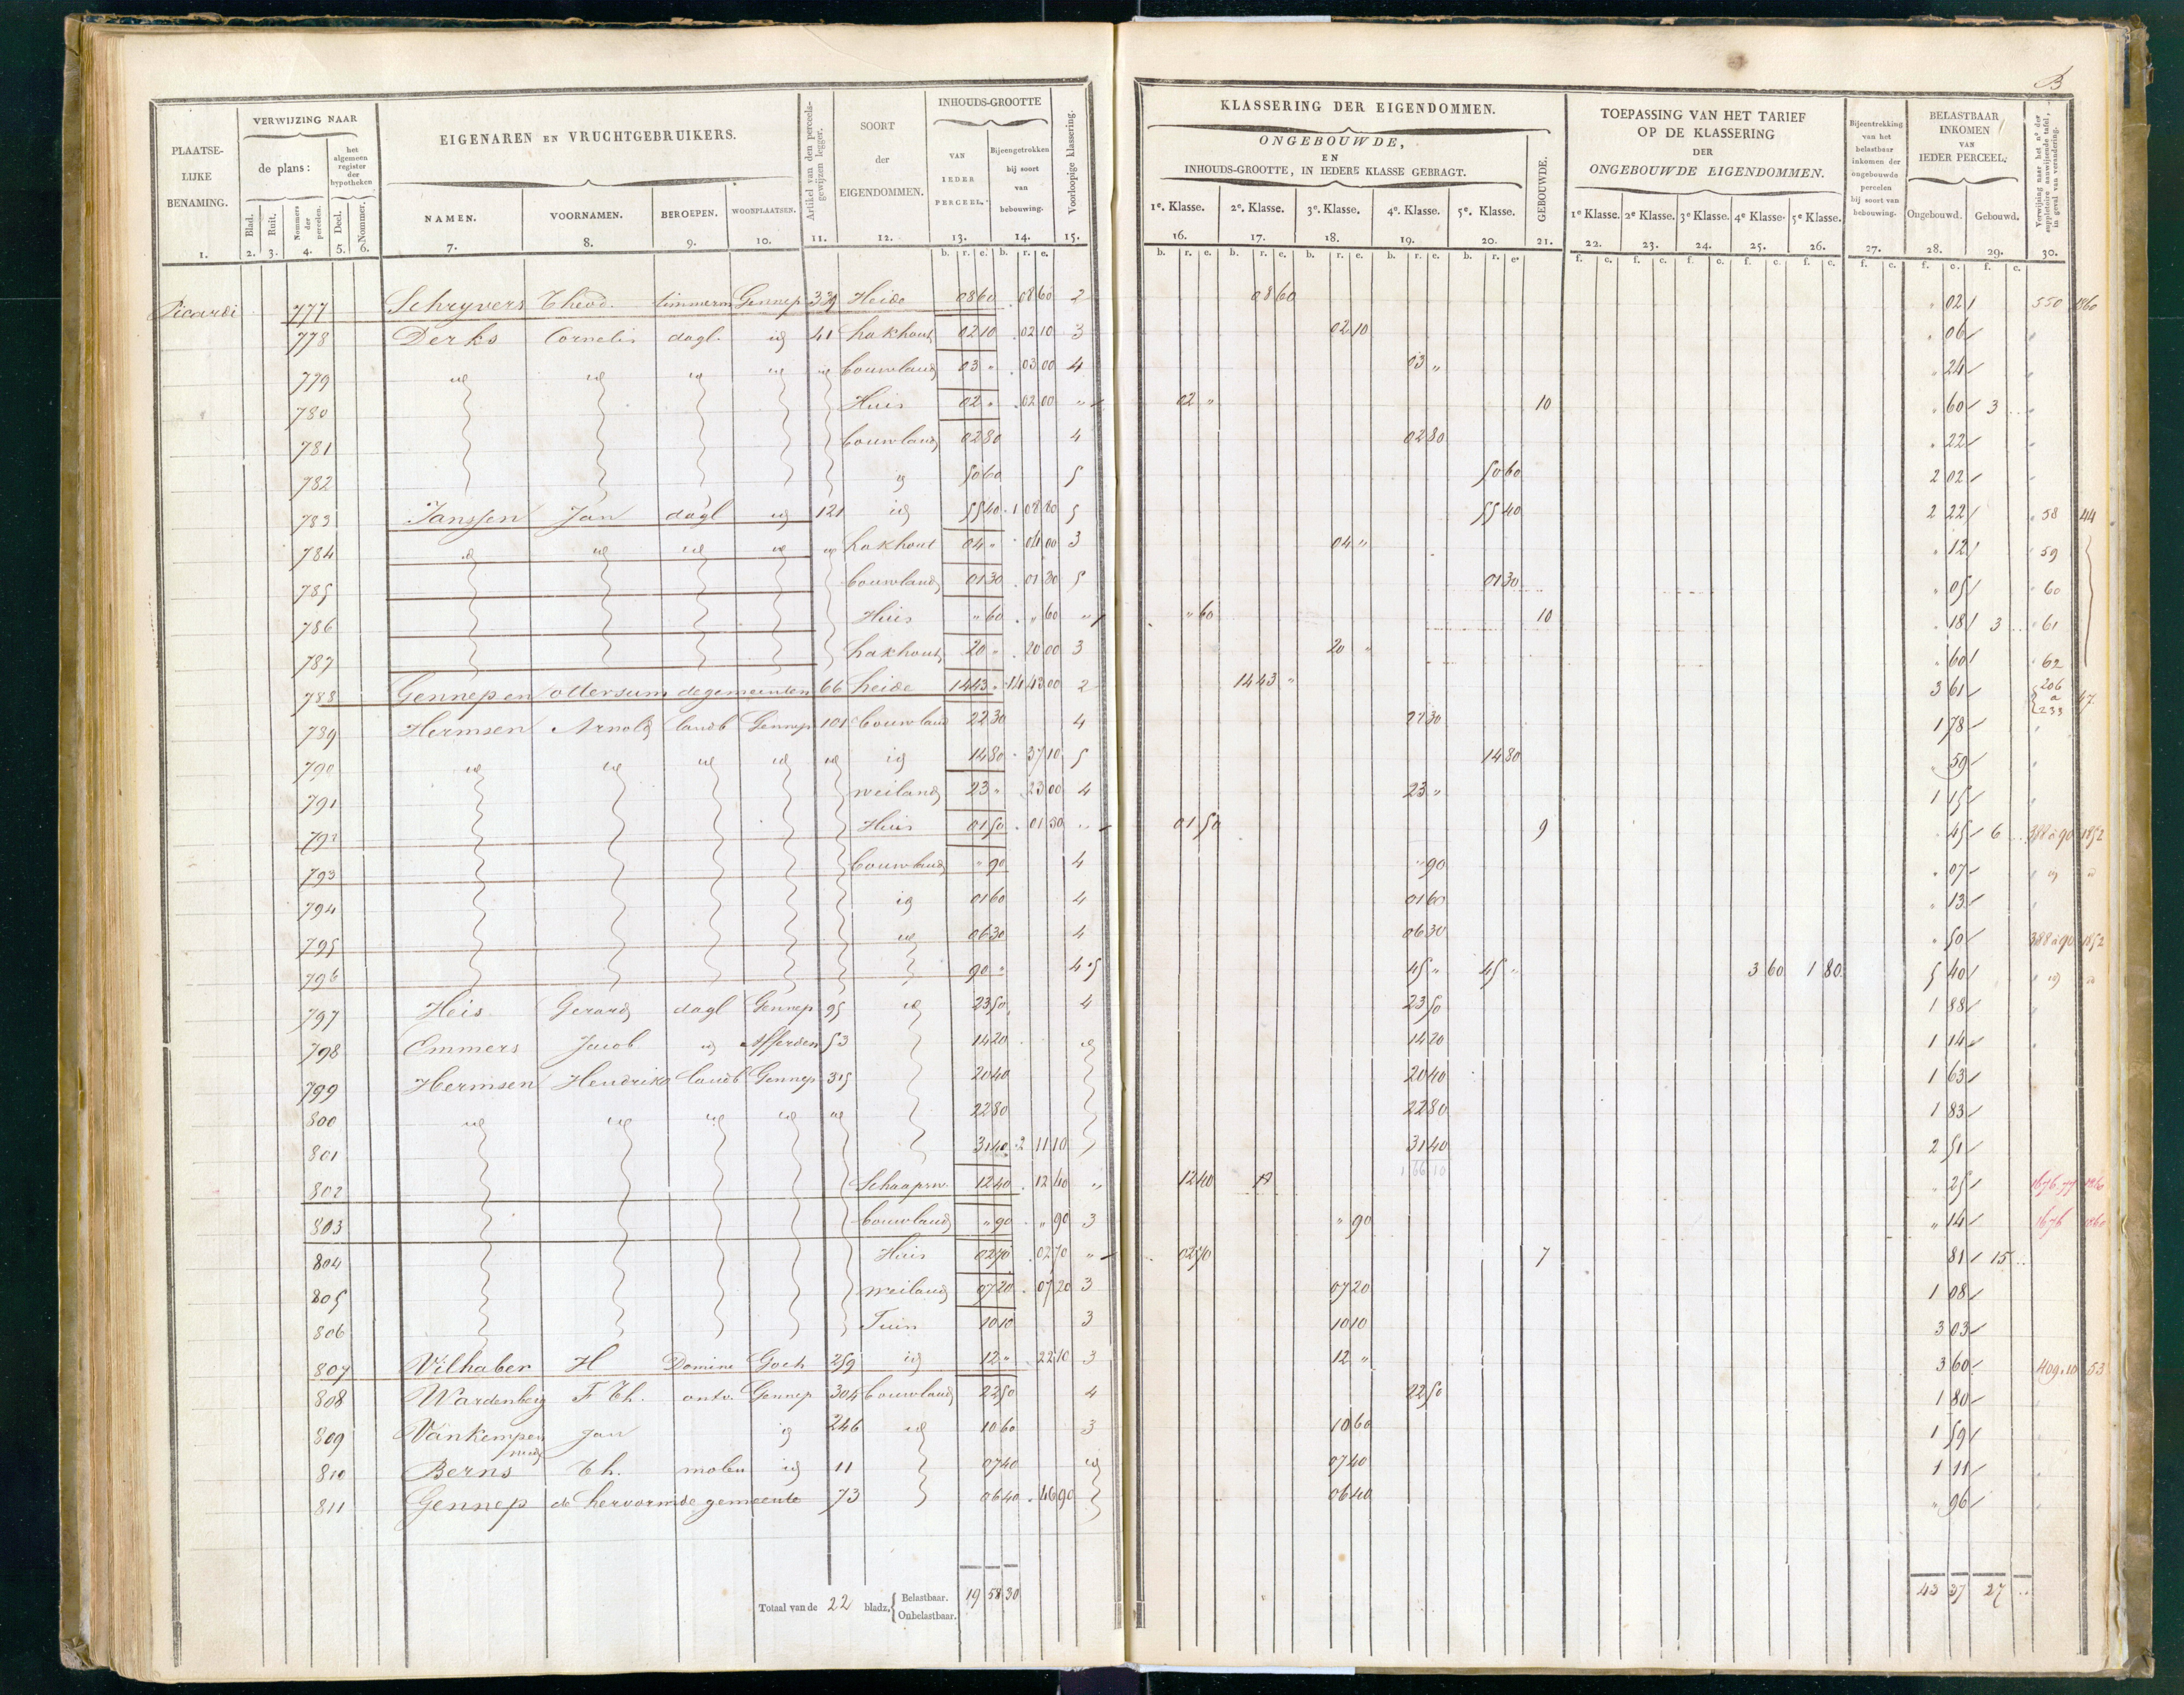 B
PLAATSE-LIJKE BENAMING. 1.
VERWIJZING NAAR
de plans:
Blad. 2. Ruit. 3. Nommers der perceelen. 4.
het algemeen register der hypotheken
Deel. 5. Nommer. 6.
EIGENAREN EN VRUCHTGEBRUIKERS.
NAMEN. 7. VOORNAMEN. 8. BEROEPEN. 9. WOONPLAATSEN. 10.
Artikel van den perceels-gewijzen legger. 11.
SOORT der EIGENDOMMEN. 12.
INHOUDS-GROOTTE
VAN IEDER PERCEEL. 13.
Bijeengetrokken bij soort van bebouwing. 14.
Voorloopige klassering. 15.
KLASSERING DER EIGENDOMMEN.
ONGEBOUWDE,
EN
INHOUDS-GROOTTE, IN IEDERE KLASSE GEBRAGT.
1e. Klasse. 16. 2e. Klasse. 17. 3e. Klasse. 18. 4e. Klasse. 19. 5e. Klasse. 20.
GEBOUWDE. 21.
TOEPASSING VAN HET TARIEF OP DE KLASSERING DER ONGEBOUWDE EIGENDOMMEN.
1e Klasse. 22. 2e Klasse. 23. 3e Klasse. 24. 4e Klasse. 25. 5e Klasse. 26.
Bijeentrekking van het belastbaar inkomen der ongebouwde percelen bij soort van bebouwing. 27.
BELASTBAAR INKOMEN VAN IEDER PERCEEL.
Ongebouwd. 28. Gebouwd. 29.
Verwijzing naar het no der suppletoire aanwijzende tafel, in geval van verandering. 30.
Picardi 777 Schryvers Theod. timmerm Gennep 339 Heide 08 60 08 60 2 08 60 " 02 550 1860
778 Derks Cornelis dagl. id 41 hakhout 02 10 02 10 3 02 10 " 06 "
779 id id id id id bouwland 03 " 03 00 4 03 " " 24 "
780 Huis 02 " 02 00 " 02 " 10 " 60 3 .. "
781 bouwland 02 80 4 02 80 " 22 "
782 id 50 60 5 50 60 2 02 "
783 Janssen Jan dagl id 121 id 55 40 1 08 80 5 55 40 2 22 58 44
784 id id id id id hakhout 04 " 04 00 3 04 " " 12 59
785 bouwland 01 30 01 30 5 01 30 " 05 60
786 Huis " 60 " 60 " " 60 10 " 18 3 .. 61
787 hakhout 20 " 20 00 3 20 " " 60 62
788 Gennep en ottersum de gemeenten 66 heide 14 43 " 14 43 00 2 14 43 " 3 61 206 a 233 47
789 Hermsen Arnold landb Gennep 101 bouwland 22 30 4 22 30 1 78 "
790 id id id id id id 14 80 37 10 5 14 80 " 59 "
791 weiland 23 " 23 00 4 23 " 1 15 "
792 Huis 01 50 01 50 " 01 50 9 " 45 6 .. 388 a 90 1852
793 bouwland " 90 4 " 90 " 07 " id "
794 id 01 60 4 01 60 " 13 "
795 id 06 30 4 06 30 " 50 388 a 90 1852
796 90 " 4.5 45 " 45 " 3 60 1 80 5 40 " id "
797 Heis Gerard dagl Gennep 95 id 23 50 4 23 50 1 88 "
798 Emmers Jacob id Afferden 53 14 20 id 14 20 1 14 "
799 Hermsen Hendrik landb Gennep 315 20 40 20 40 1 63
800 id id id id id 22 80 22 80 1 83
801 31 40 2 11 10 31 40 2 51
1 66 10
802 Schaapsw. 12 40 12 40 " 12 40 " 25 1676.77 1860
803 bouwland " 90 " 90 3 " 90 " 14 1676 1860
804 Huis 02 70 02 70 " 02 70 7 81 15 ..
805 weiland 07 20 07 20 3 07 20 1 08
806 Tuin 10 10 3 10 10 3 03
807 Vilhaber H Domine Goch 259 id 12 " 22 10 3 12 " 3 60 409.10 53
808 Wardenberg F Th. ontv. Gennep 304 bouwland 22 50 4 22 50 1 80
809 Van Kempen Jan id 246 id 10 60 3 10 60 1 59
810 Berns Th. molen id 11 07 40 id 07 40 1 11
811 Gennep de hervormde gemeente 73 06 40 46 90 06 40 " 96
Totaal van de 22 bladz. { Belastbaar. 19 58 30 43 37 27 ..
Onbelastbaar.